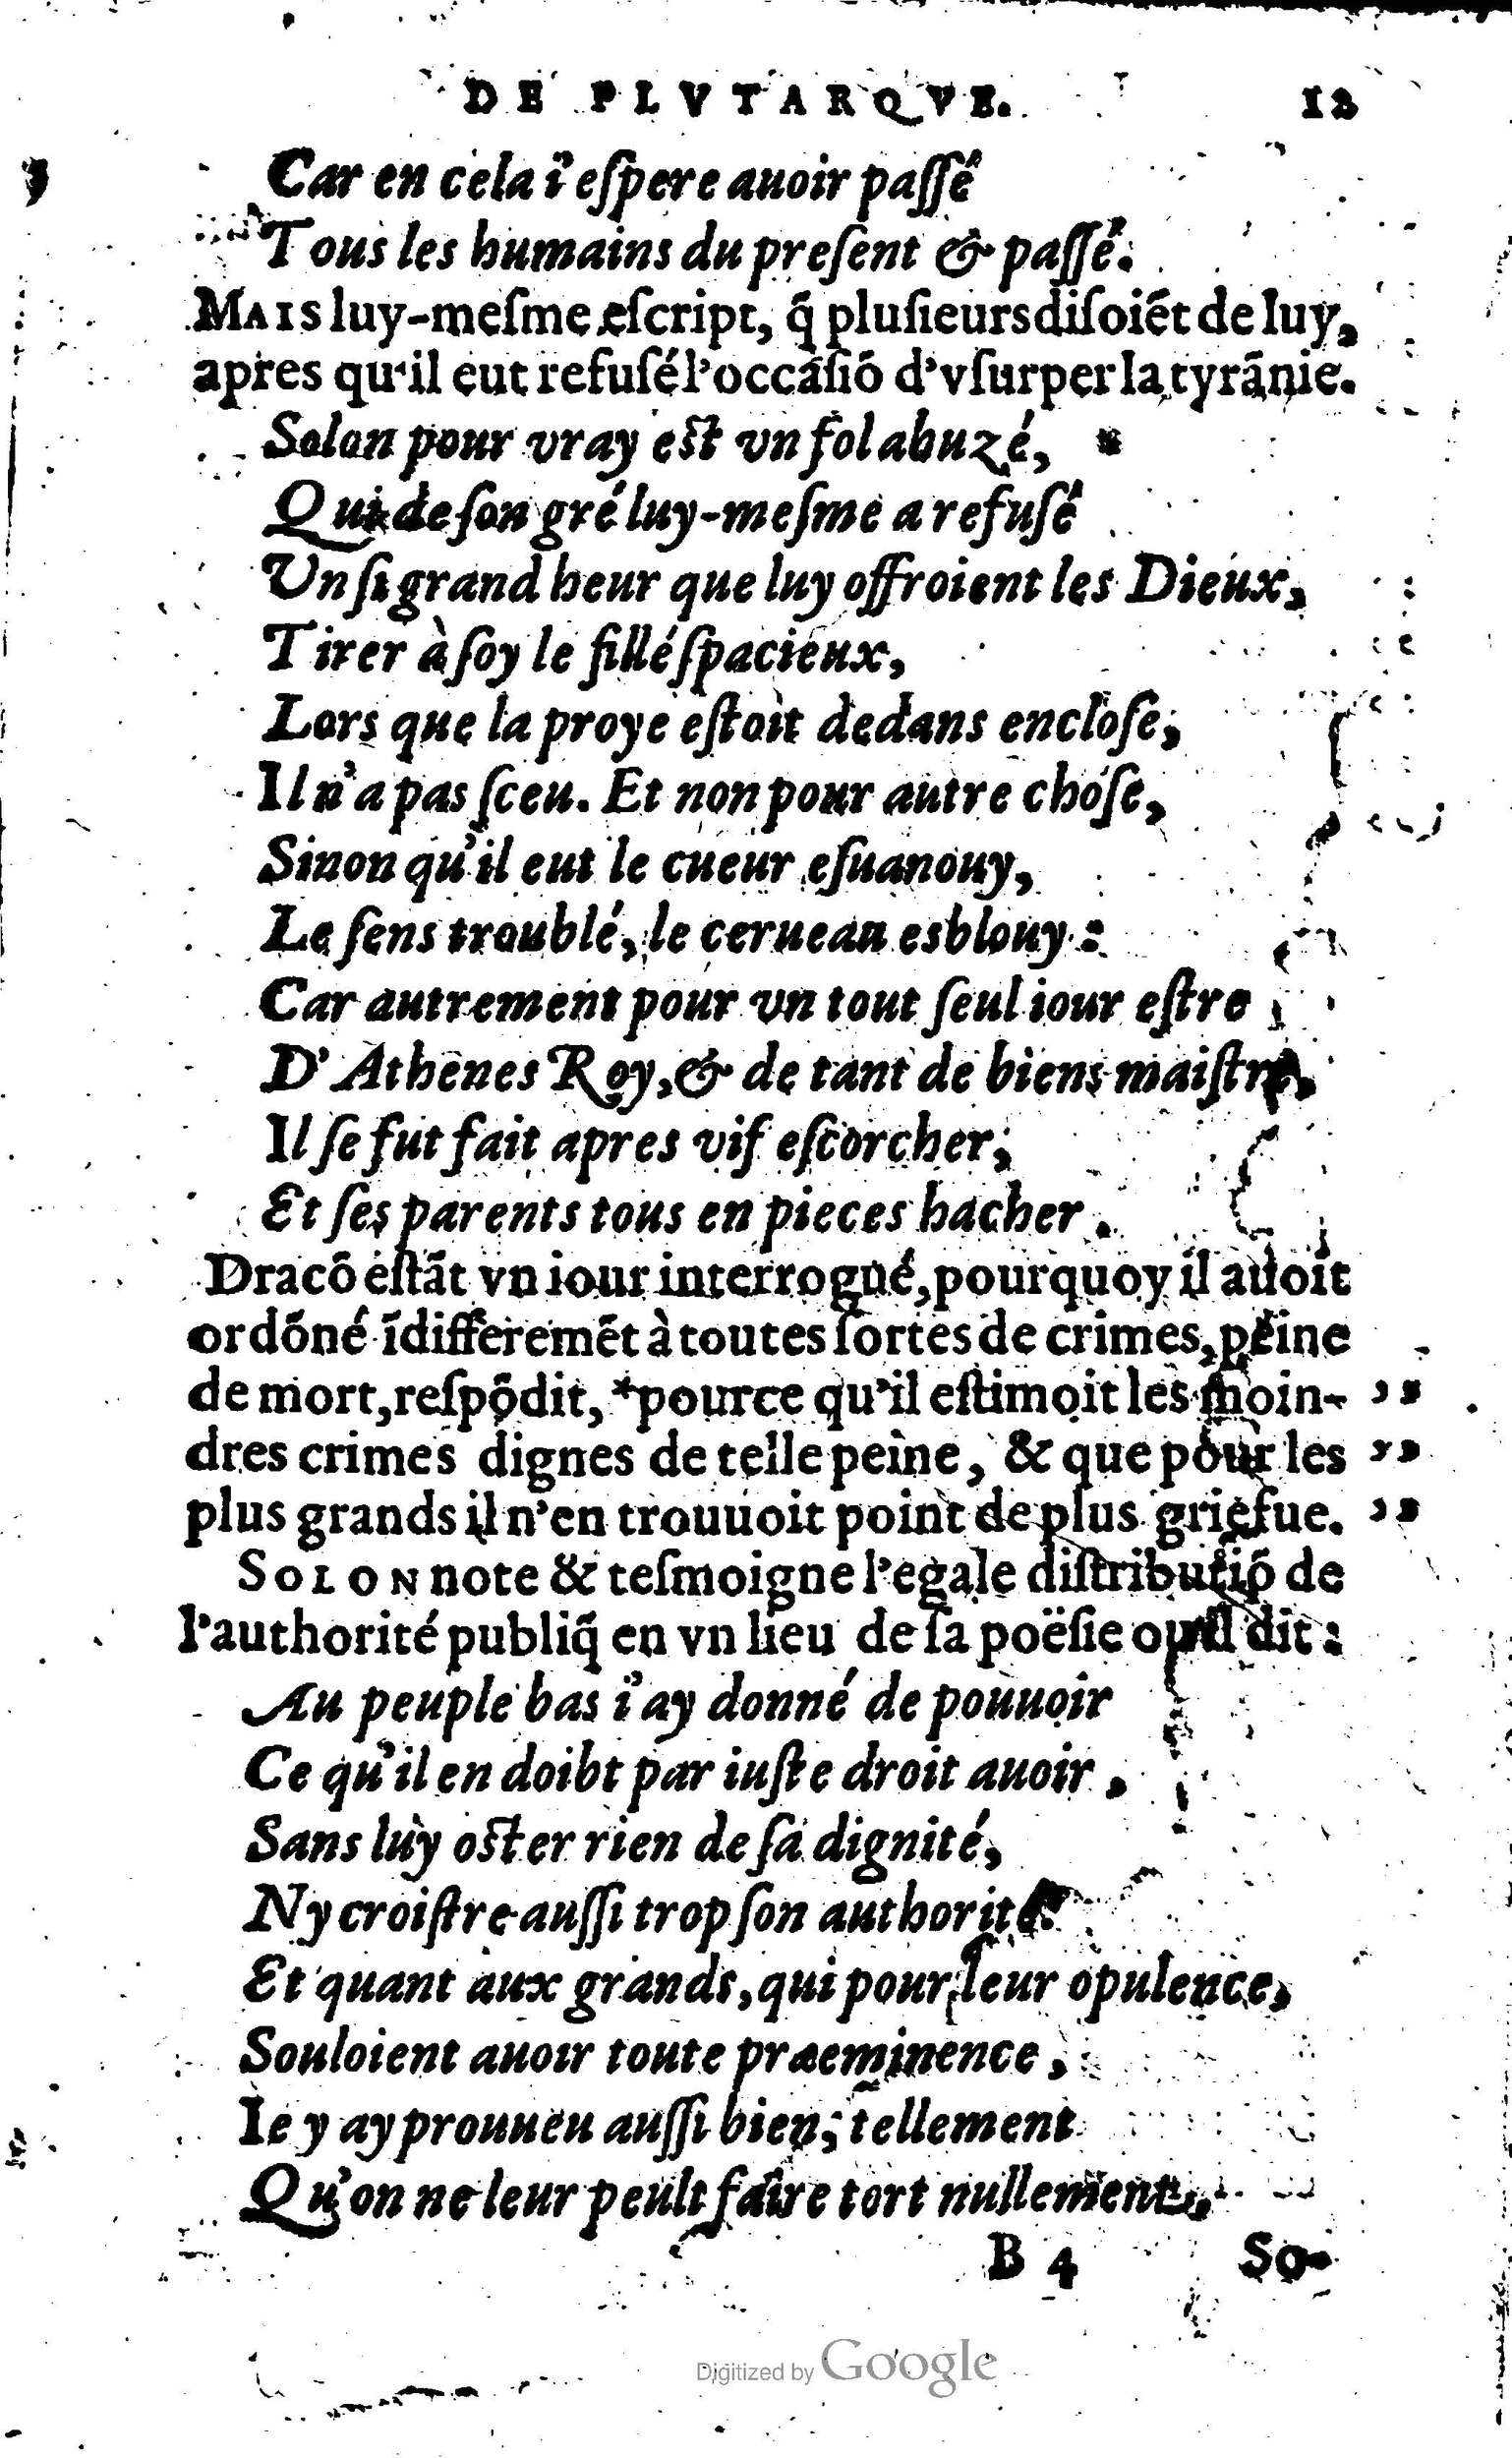 DE PLVTARQVE. 12
Car en cela i'eſpere auoir paſſé
Tous les humains du preſent & paſſé.
MAIS luy-meſme eſcript, q̃ pluſieurs diſoiẽt de luy,
apres qu'il eut refuſé l'occaſiõ d'vſurper la tyrãnie.
Solon pour vray eſt vn fol abuzé, *
Qui de ſon gré luy-meſme a refuſé
Vn ſi grand heur que luy offroient les Dieux,
Tirer à ſoy le fillé ſpacieux,
Lors que la proye eſtoit dedans encloſe,
Il n'a pas ſceu. Et non pour autre choſe,
Sinon qu'il eut le cueur eſuanouy,
Le ſens troublé, le cerueau esblouy:
Car autrement pour vn tout ſeul iour eſtre
D'Athenes Roy, & de tant de biens maiſtre,
Il ſe fut fait apres vif eſcorcher,
Et ſes parents tous en pieces hacher.
Dracõ eſtãt vn iour interrogué, pourquoy il auoit
ordõné ĩdifferemẽt à toutes ſortes de crimes, peine
de mort, reſpõdit, *pource qu'il eſtimoit les moin- ,,
dres crimes dignes de telle peine, & que pour les ,,
plus grands il n'en trouuoit point de plus griefue. ,,
SOLON note & teſmoigne l'egale diſtributiõ de
l'authorité publiq̃ en vn lieu de ſa poëſie ou il dit:
Au peuple bas i'ay donné de pouuoir
Ce qu'il en doibt par iuſte droit auoir,
Sans luy oſter rien de ſa dignité,
Ny croiſtre auſſi trop ſon authorité.
Et quant aux grands, qui pour leur opulence,
Souloient auoir toute praeminence,
Ie y ay prouueu auſſi bien, tellement
Qu'on ne leur peult faire tort nullement.
B 4 So-
Digitized by Google